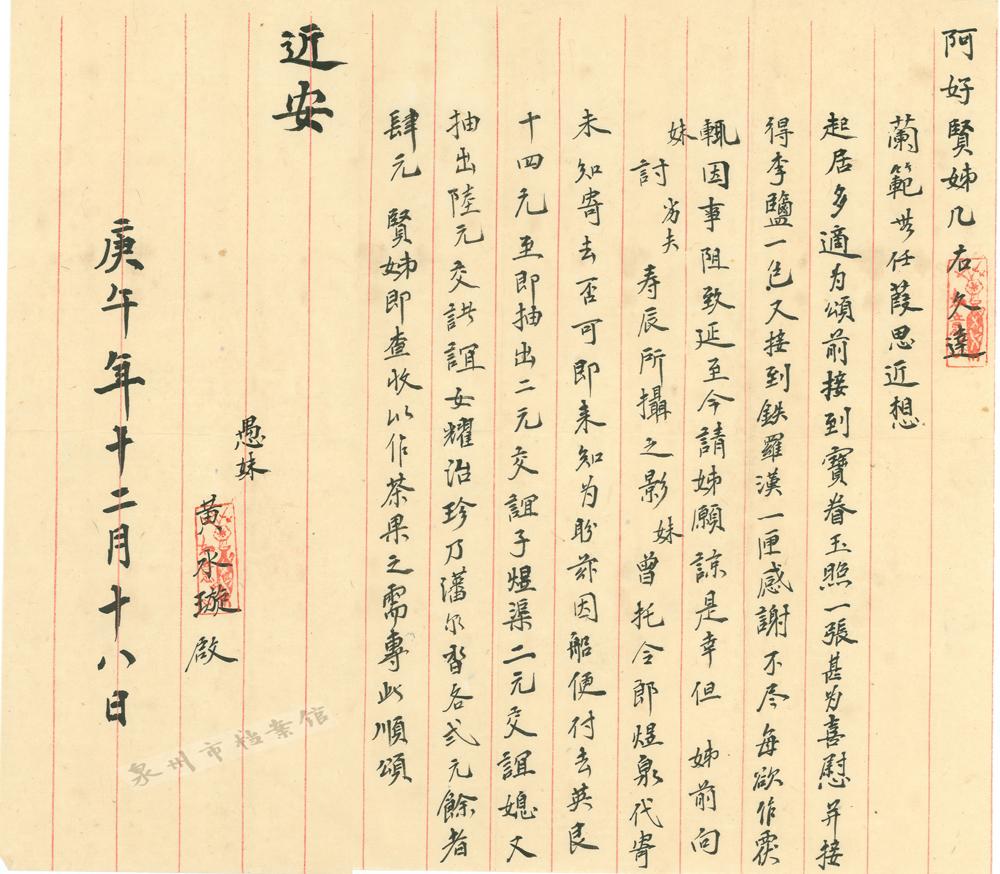 阿好賢姊几右久違
蘭範无任葭思近想
起居多適为頌前接到寶眷玉照一張甚为喜慰并接
得李鹽一包又接到鉄羅漢一匣感謝不尽每欲作覆
輒因事阻致延至今請姊願諒是幸但 姊前向
妹討 劣夫 寿辰所攝之影 妹曾托令郎煜泉代寄
未知寄去否可即来知为盼茲因船便付去英艮
十四元至即抽出二元交誼子煜渠二元交誼媳又
抽出陸元交誼女耀治珍乃藩各弍元餘者
肆元 賢姊即查收以作茶果之需專此順頌
近安
愚妹
黄永璇啟
庚午年十二月十八日
泉州市档案馆